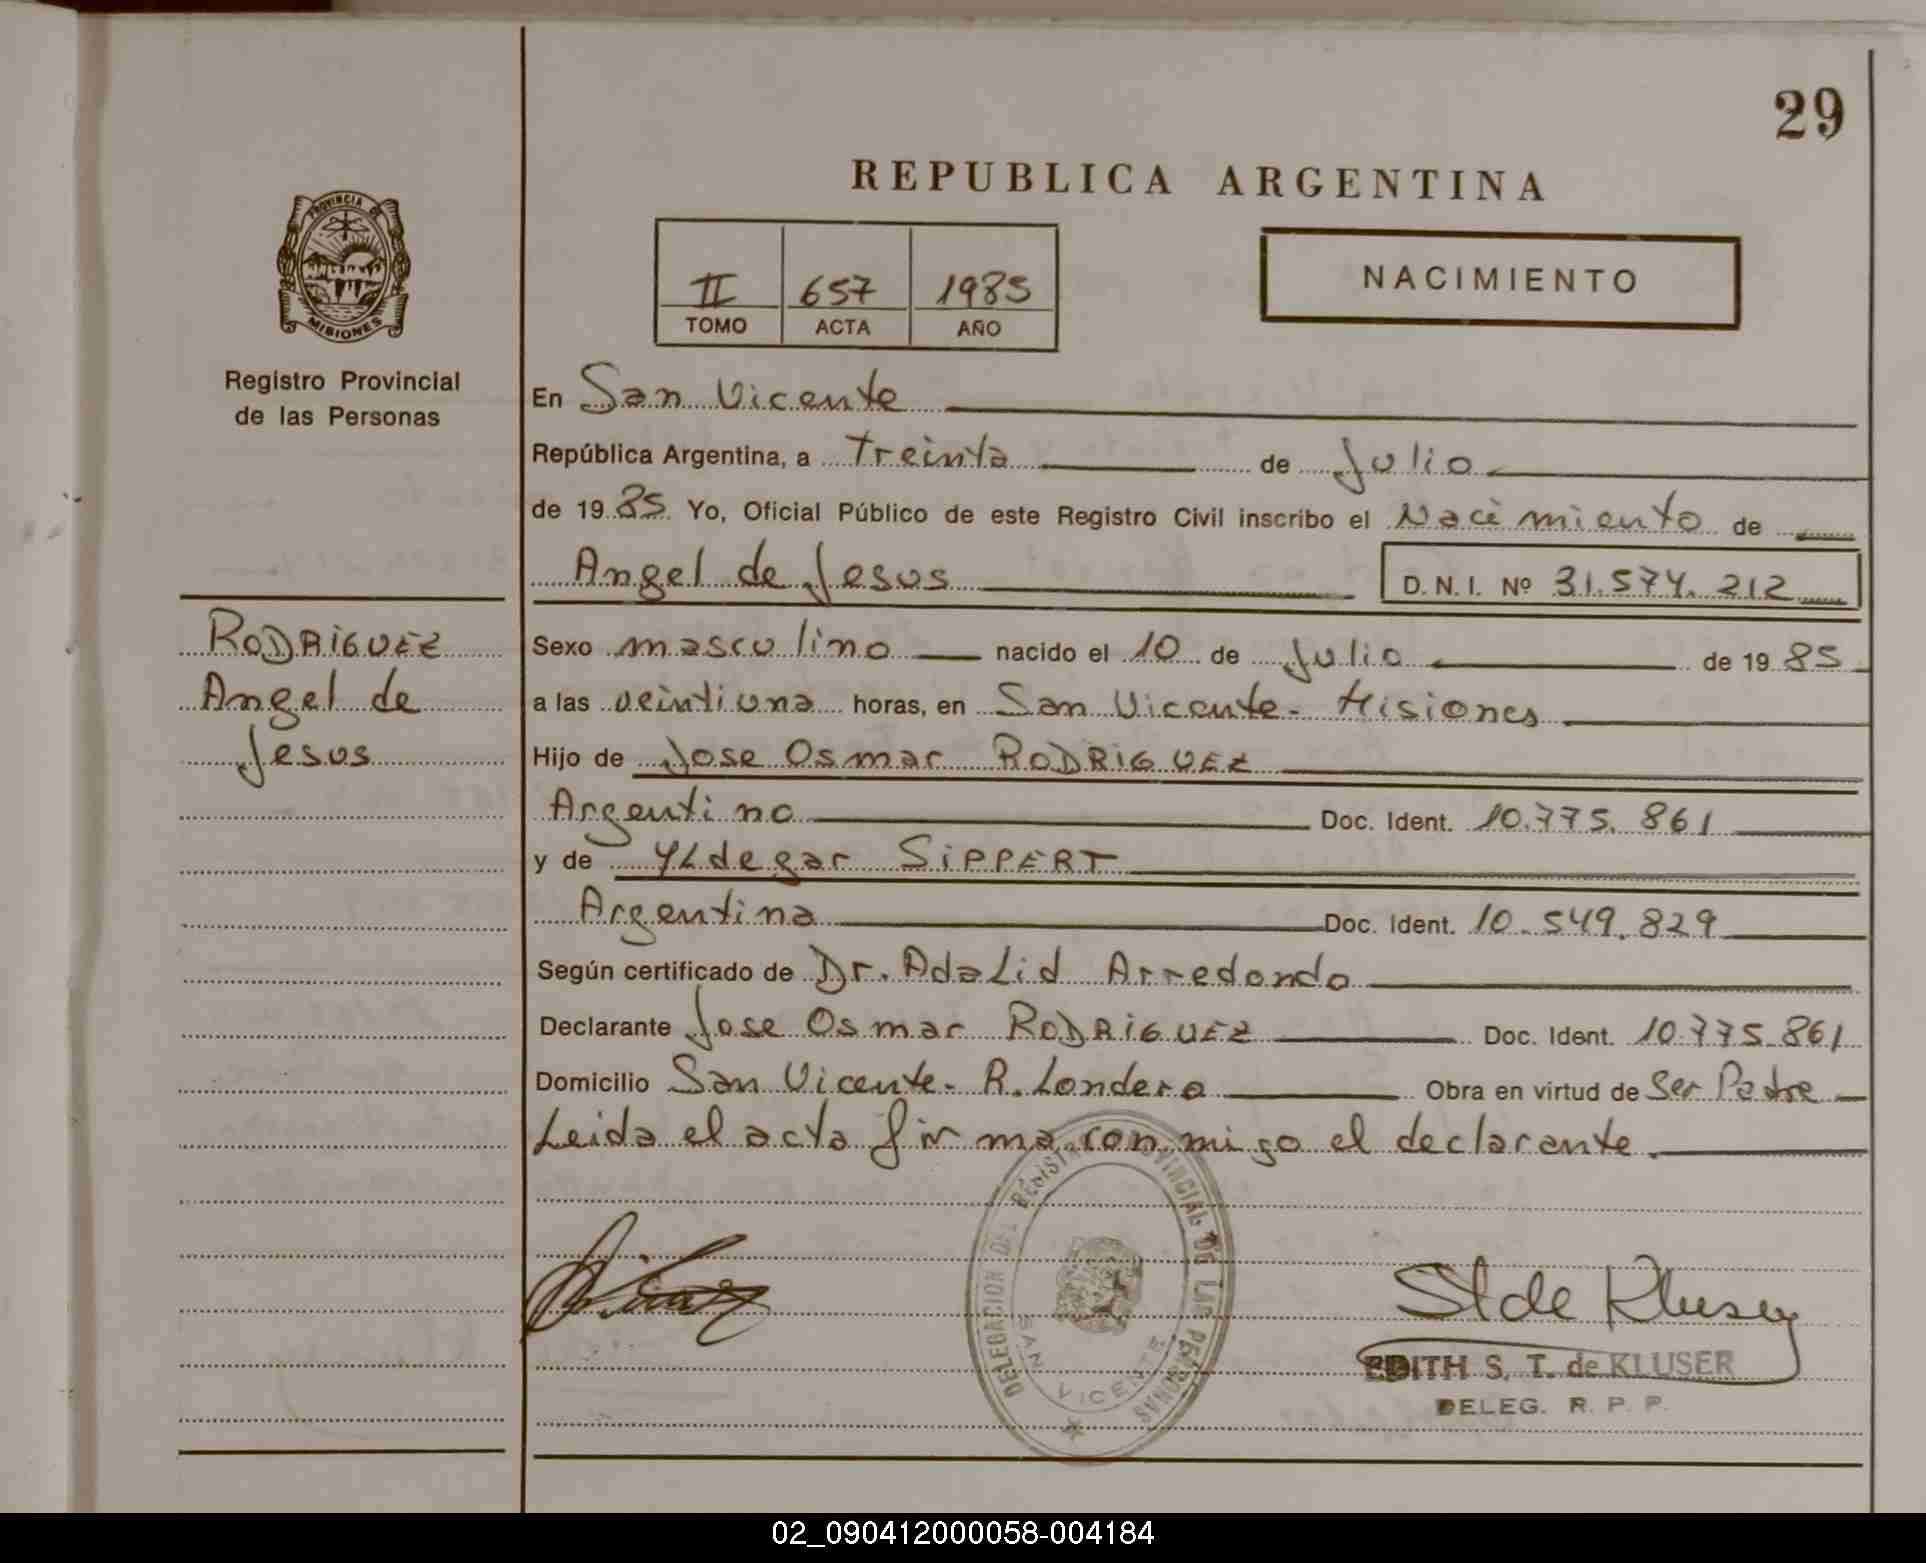 29
REPUBLICA ARGENTINA
PROVINCIA DE
MISIONES
II 657 1985
TOMO ACTA AÑO
NACIMIENTO
Registro Provincial
de las Personas
En San Vicente
República Argentina, a treinta de Julio
de 1985 Yo, Oficial Público de este Registro Civil inscribo el Nacimiento de
Angel de Jesus D. N. I. Nº 31.574.212
RODRIGUEZ
Angel de
Jesus
Sexo masculino nacido el 10 de Julio de 1985
a las veintiuna horas, en San Vicente - Misiones
Hijo de Jose Osmar RODRIGUEZ
Argentino Doc. Ident. 10.775.861
y de YLdegar SIPPERT
Argentina Doc. Ident. 10.549.829
Según certificado de Dr. AdaLid Arredondo
Declarante Jose Osmar RODRIGUEZ Doc. Ident. 10.775.861
Domicilio San Vicente - R. Londero Obra en virtud de Ser Padre
Leida el acta firma conmigo el declarante.
DELEGACION DEL REGISTRO PROVINCIAL DE LAS PERSONAS
SAN VICENTE
St de Kluser
EDITH S. T. de KLUSER
DELEG. R. P. P.
02_090412000058-004184